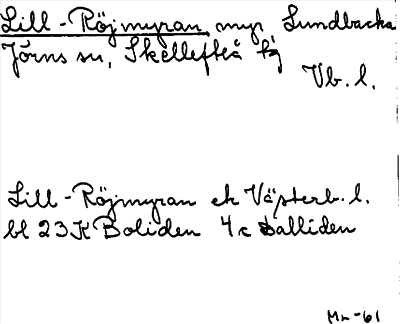 Lill-Röjmyran, myr, Lundbacka
Jörns sn, Skellefteå tg
Vb. l.
Lill-Röjmyran ek Västerb. l.
bl 23K Boliden 4c Dalliden
Mr-61